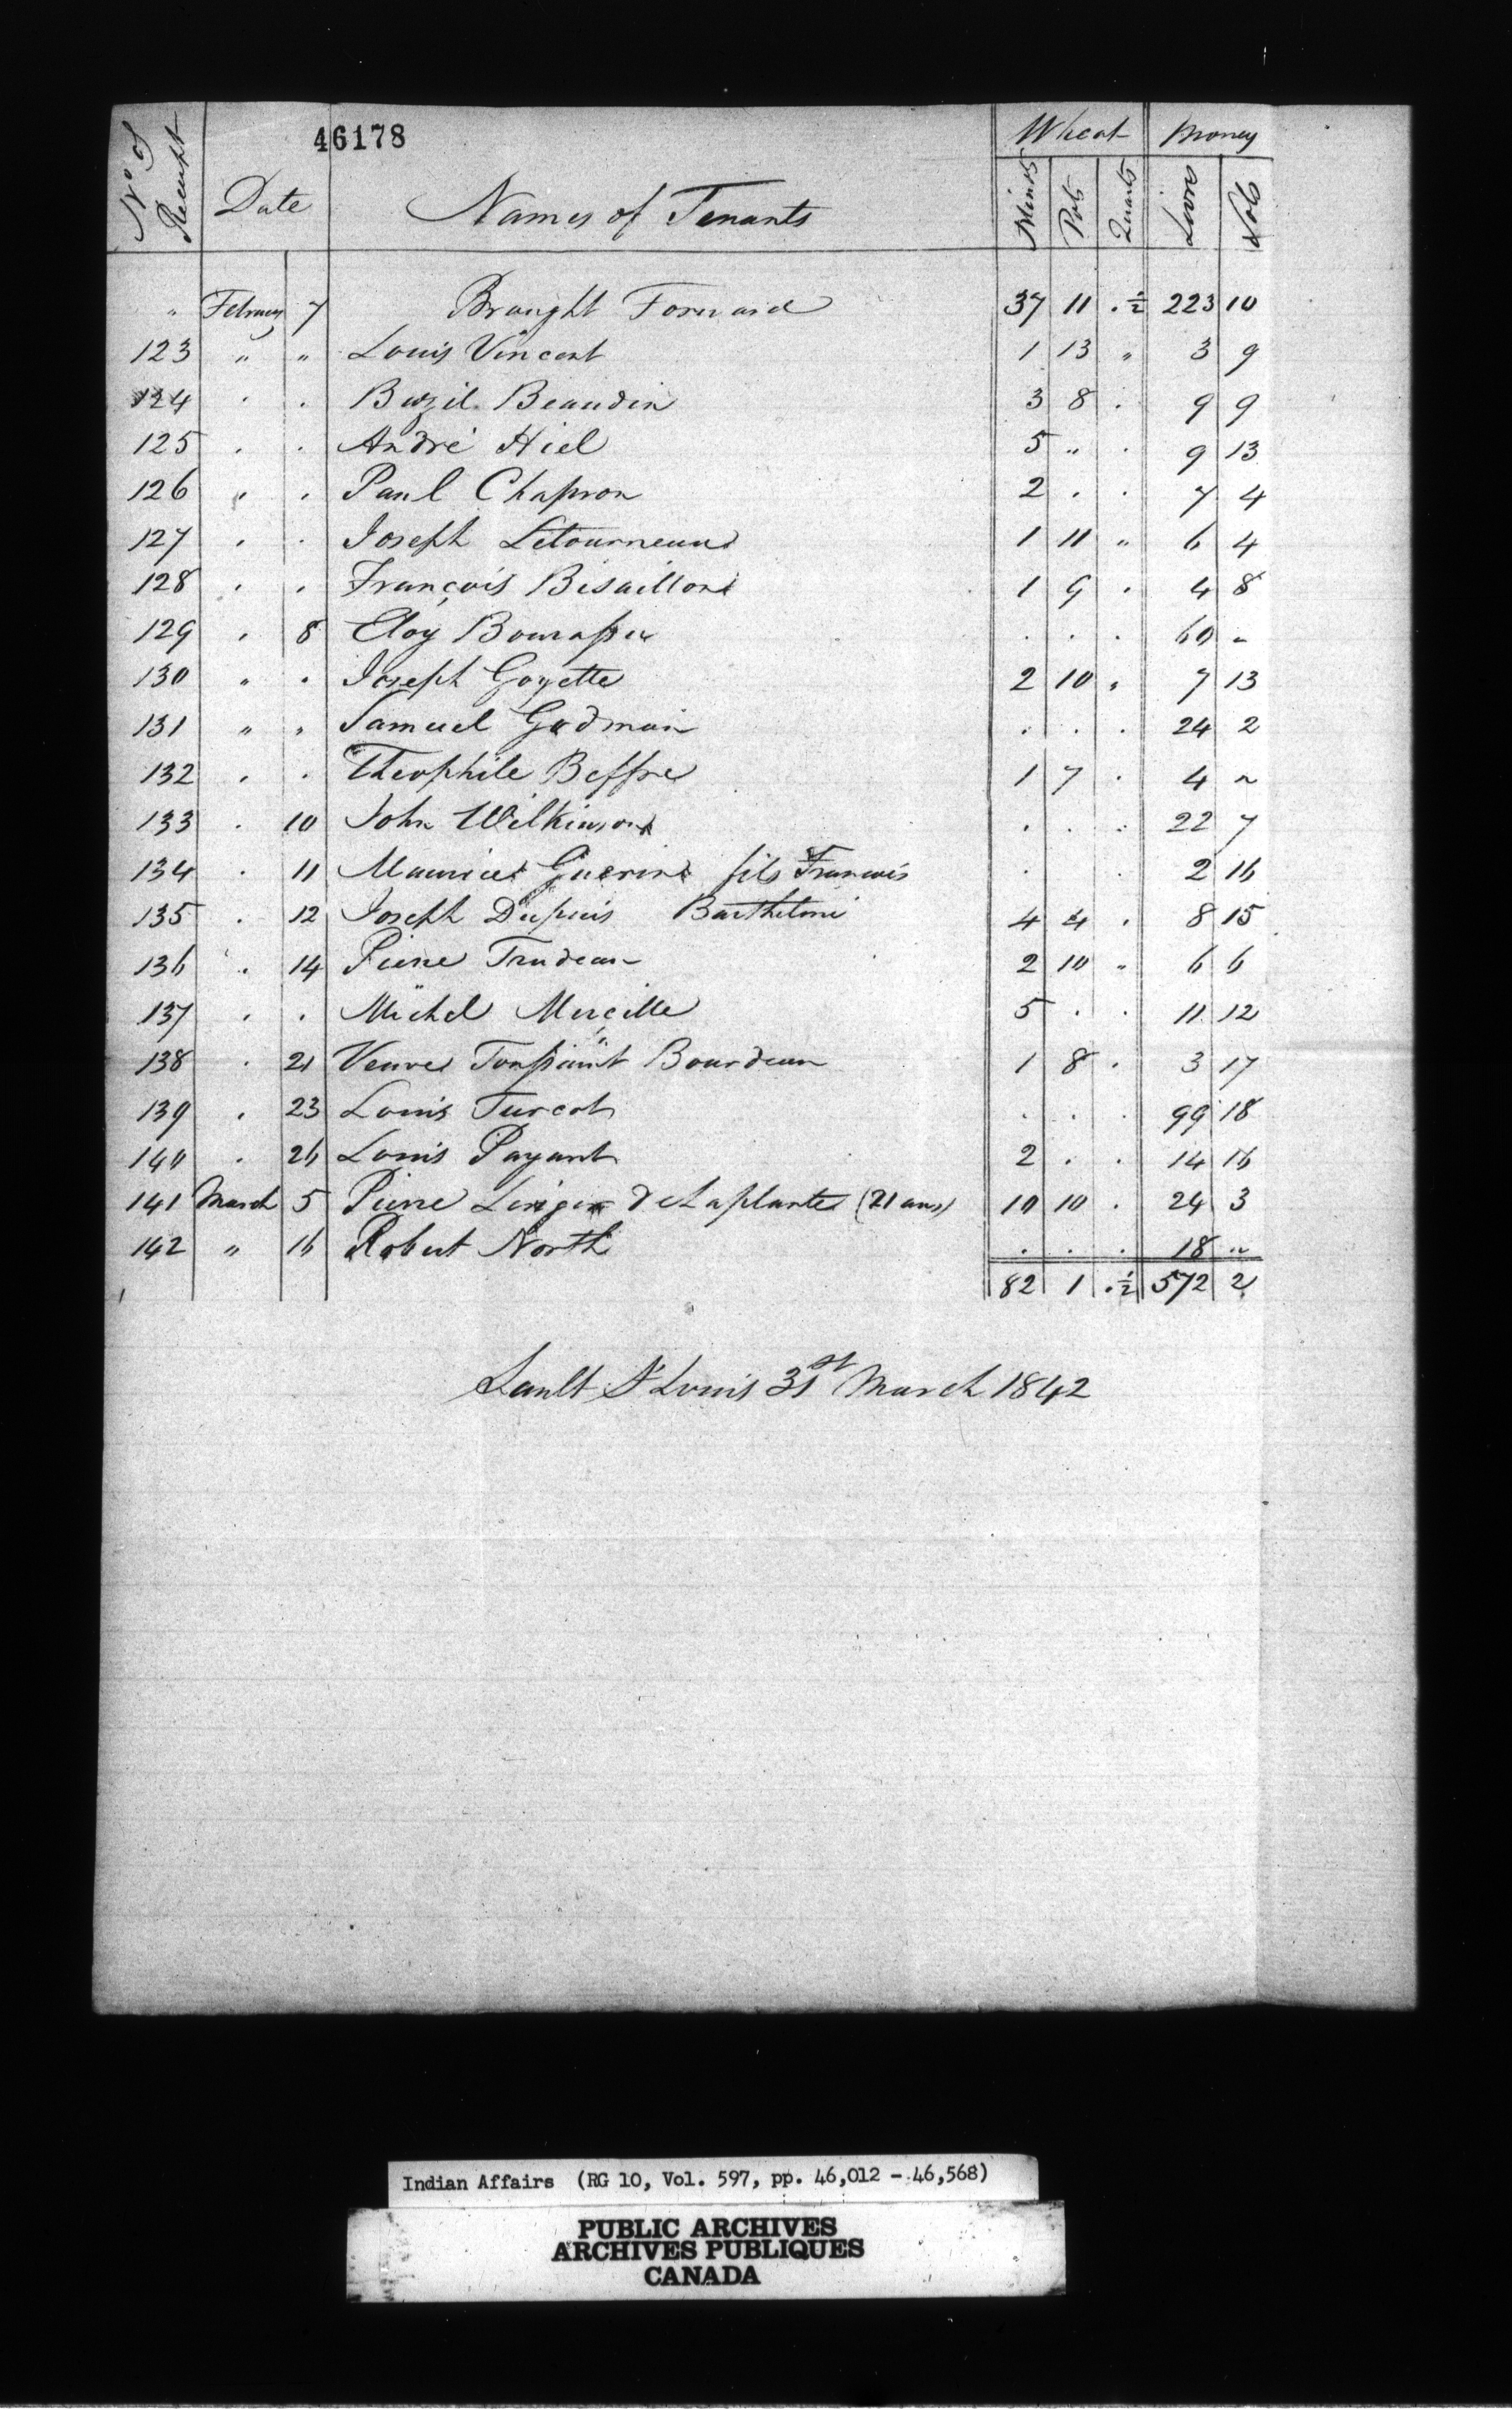 46178
No of Receipt Date Names of Tenants Wheat Money
Minots Pots Quarts Livres Sols
" February 7 Brought Forward 37 11 . ½ 223 10
123 " " Louis Vincent 1 13 " 3 9
124 . . Bazil Beaudin 3 8 . 9 9
125 . . André Hiel 5 " . 9 13
126 " . Paul Chapron 2 . . 7 4
127 . . Joseph Letourneau 1 11 " 6 4
128 . . François Bisaillon 1 9 . 4 8
129 . 8 Eloy Bourassa . . . 60 "
130 " . Joseph Goyette 2 10 " 7 13
131 " " Samuel Godman . . . 24 2
132 . . Theophile Beffre 1 7 . 4 "
133 . 10 John Wilkinson . . . 22 7
134 . 11 Maurice Guerin fils Francois . . 2 16
135 . 12 Joseph Dupuis Barthelmi 4 4 . 8 15
136 . 14 Pierre Trudeau 2 10 " 6 6
137 . . Michel Mercille 5 . . 11 12
138 . 21 Veuve Toussaint Bourdeau 1 8 . 3 17
139 . 23 Louis Turcot . . . 99 18
140 . 26 Louis Payant 2 . . 14 16
141 March 5 Pierre deLaplante (21 ans) 10 10 . 24 3
142 " 16 Robert North . . . 18 "
82 1 . ½ 572 2
Sault St Louis 31st March 1842
Indian Affairs (RG 10, Vol. 597, pp. 46,012 - 46,568)
PUBLIC ARCHIVES
ARCHIVES PUBLIQUES
CANADA